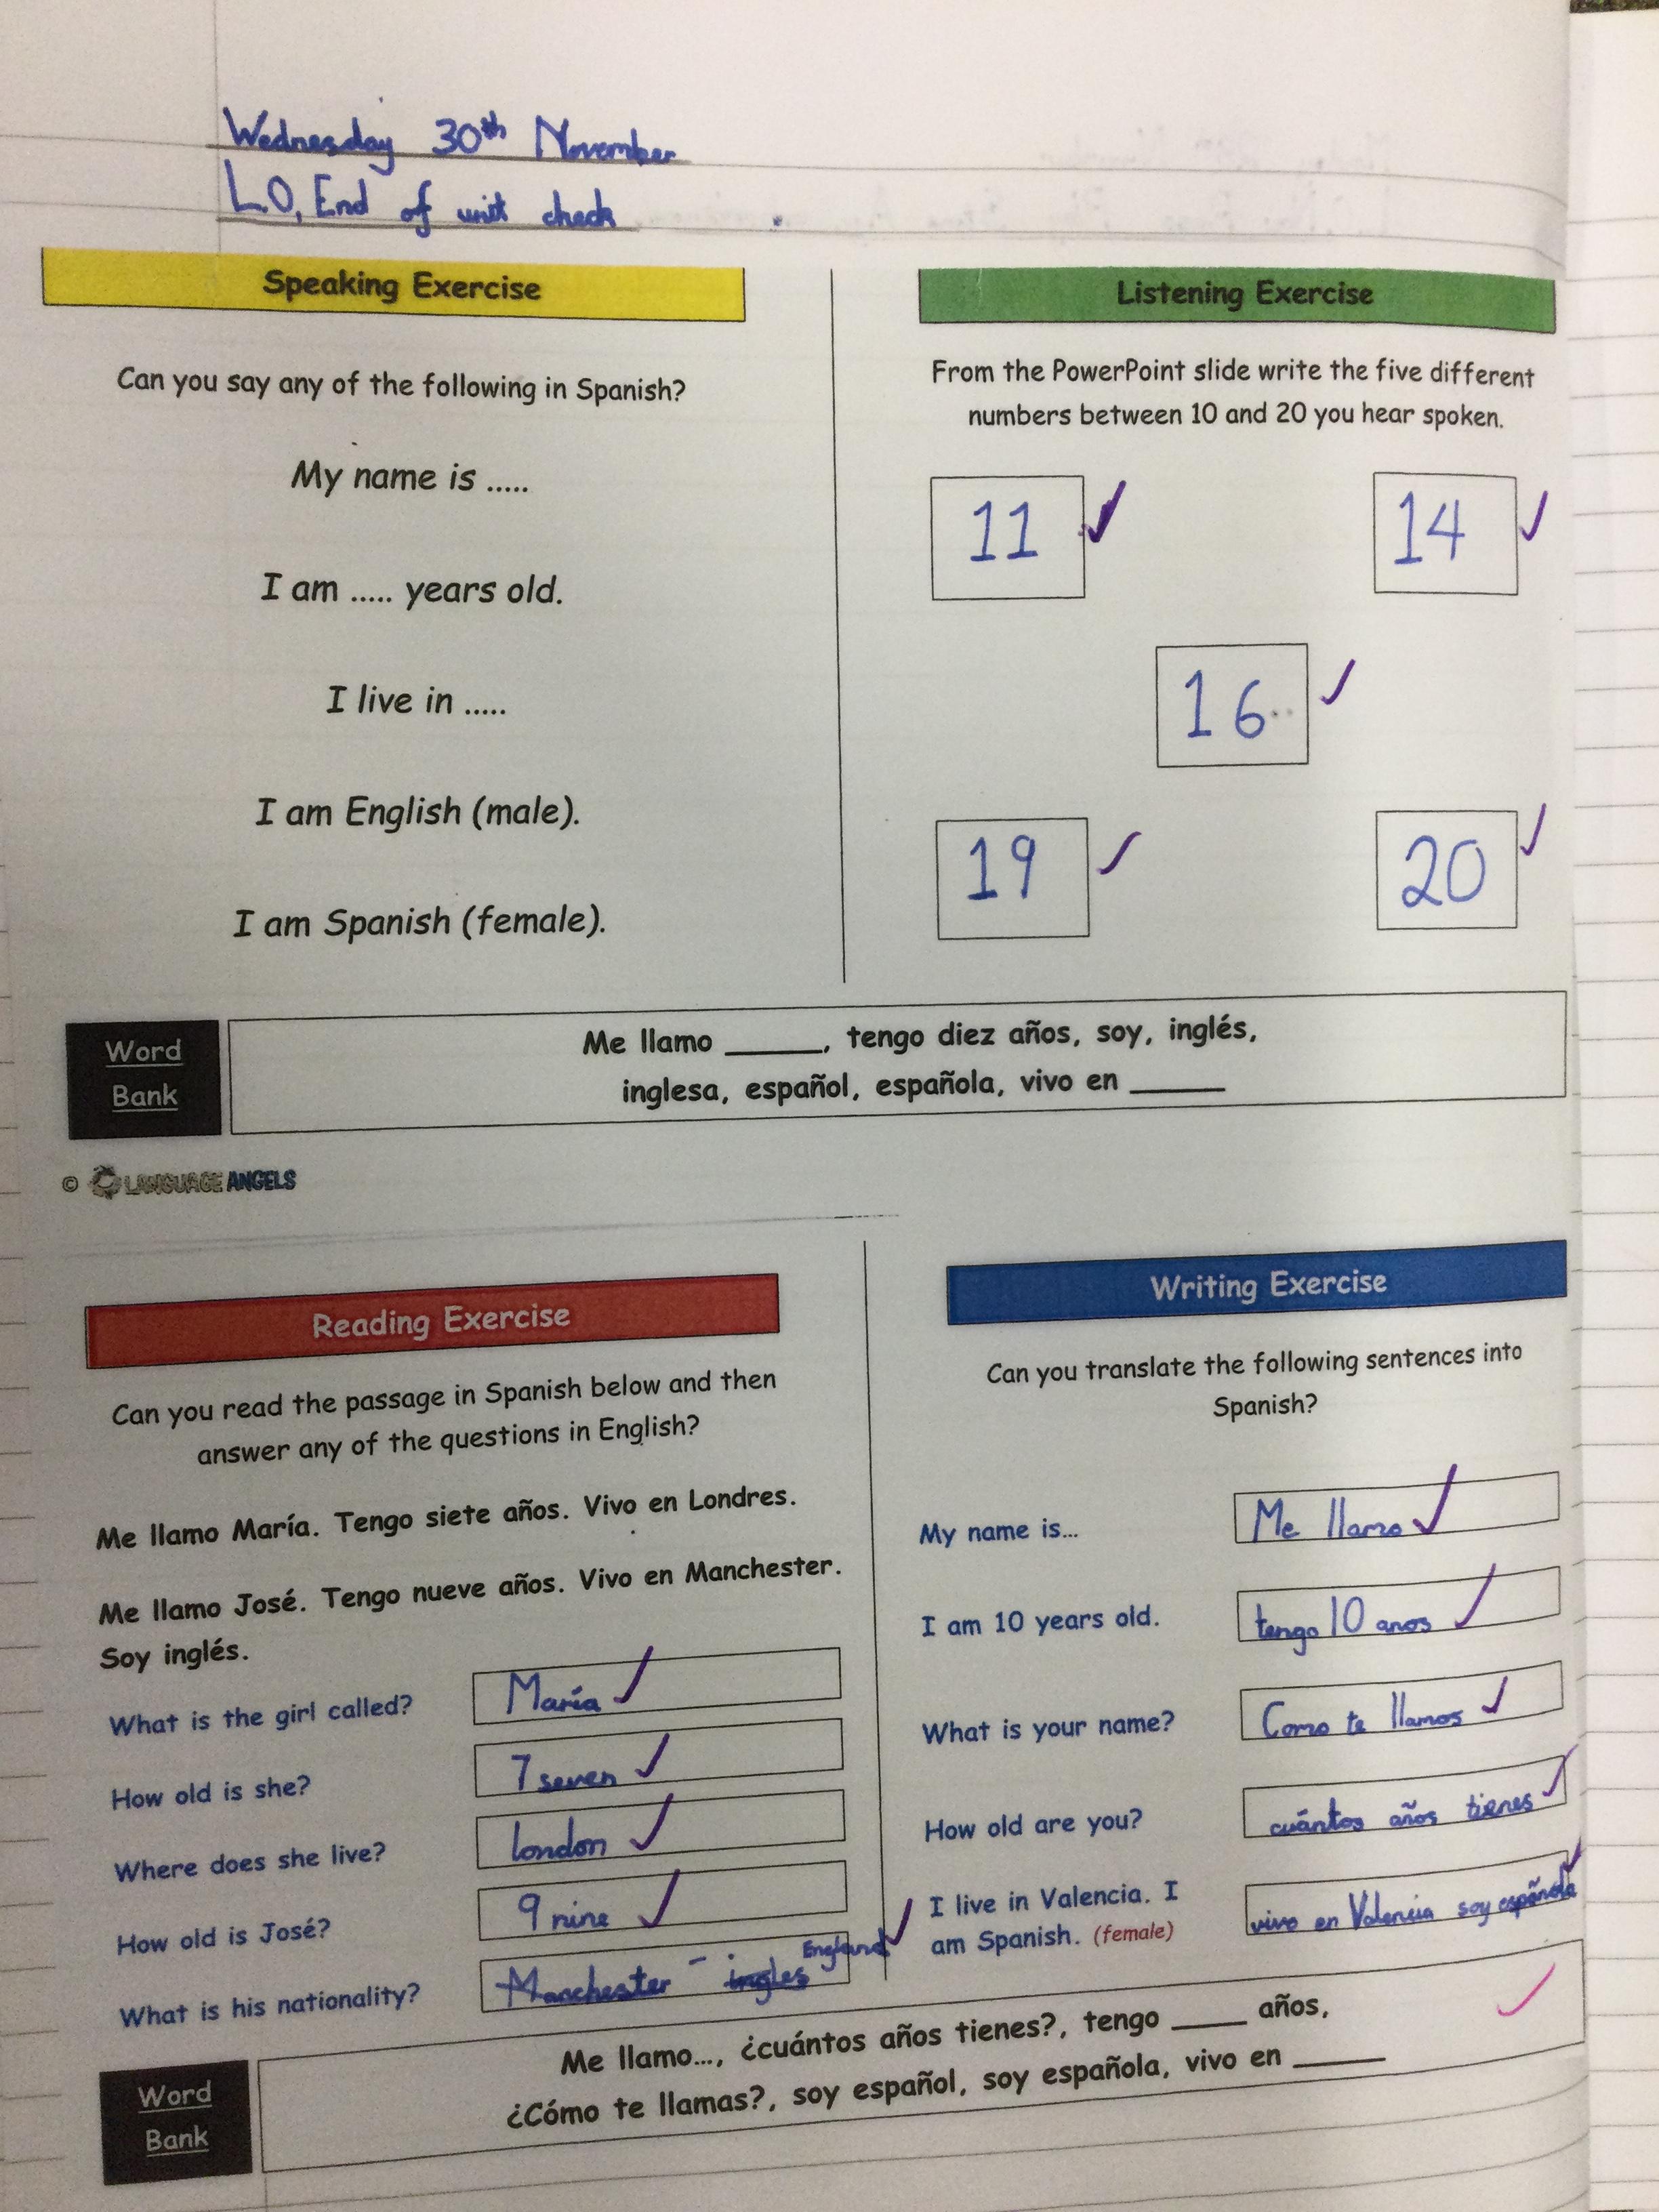 Wednesday 30th November
L.O, End of unit check
Speaking Exercise
Can you say any of the following in Spanish?
My name is .....
I am ..... years old.
I live in .....
I am English (male).
I am Spanish (female).
Listening Exercise
From the PowerPoint slide write the five different
numbers between 10 and 20 you hear spoken.
11
14
16
19
20
Word
Bank
Me llamo _____, tengo diez años, soy, inglés,
inglesa, español, española, vivo en _____
© LANGUAGE ANGELS
Reading Exercise
Can you read the passage in Spanish below and then
answer any of the questions in English?
Me llamo María. Tengo siete años. Vivo en Londres.
Me llamo José. Tengo nueve años. Vivo en Manchester.
Soy inglés.
What is the girl called? María
How old is she? 7 seven
Where does she live? london
How old is José? 9 nine
What is his nationality? Manchester - ingles England
Writing Exercise
Can you translate the following sentences into
Spanish?
My name is... Me llamo
I am 10 years old. tengo 10 anos
What is your name? Como te llamos
How old are you? cuántos años tienes
I live in Valencia. I
am Spanish. (female)
vivo en Valencia soy española
Word
Bank
Me llamo..., ¿cuántos años tienes?, tengo ____ años,
¿Cómo te llamas?, soy español, soy española, vivo en _____